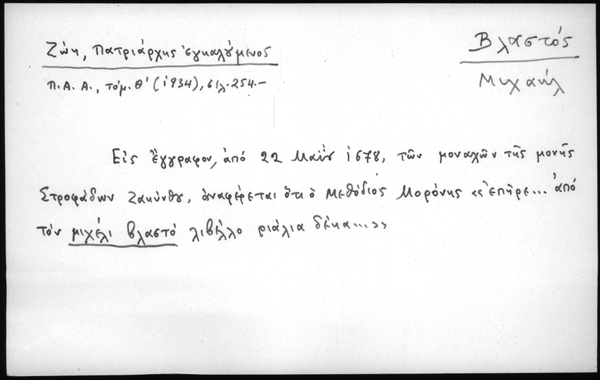 Ζώη, Πατριάρχης ἐγκαλούμενος
Π.Α.Α., τόμ. Θ' (1934), σελ. 254.-
Βλαστός
Μιχαήλ
Εἰς ἔγγραφον, ἀπό 22 Μαΐου 1678, τῶν μοναχῶν τῆς μονῆς
Στροφάδων Ζακύνθου, ἀναφέρεται ὅτι ὁ Μεθόδιος Μορώνης «ἐπῆρε... ἀπό
τόν μιχέλι βλαστό λιβέλλο ριάλια δέκα...»